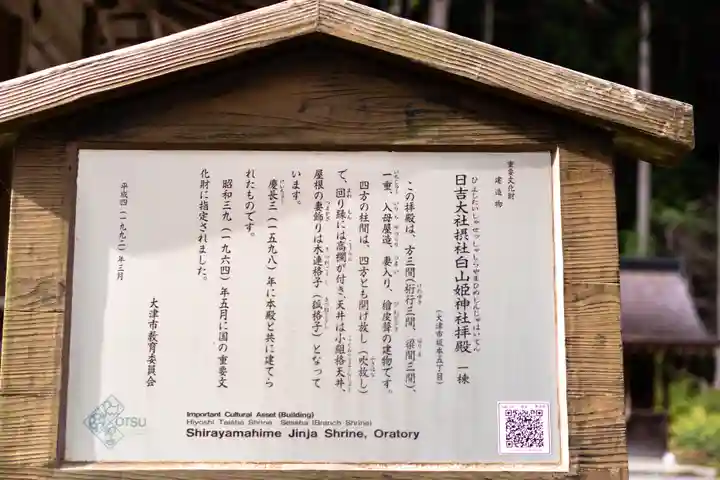 重要文化財
建造物
日吉大社摂社白山姫神社拝殿 一棟
(大津市坂本五丁目)
この拝殿は、方三間(桁行三間、梁間三間)、
一重、入母屋造、妻入り、檜皮葺の建物です。
四方の柱間は、四方とも開け放し(吹放し)
で、回り縁には高欄が付き、天井は小組格天井、
屋根の妻飾りは木連格子(狐格子)となって
います。
慶長三(一五九八)年に本殿と共に建てら
れたものです。
昭和三九(一九六四)年五月に国の重要文
化財に指定されました。
平成四(一九九二)年三月
大津市教育委員会
OTSU
Important Cultural Asset (Building)
Hiyoshi Taisha Shrine Sessha (Branch Shrine)
Shirayamahime Jinja Shrine, Oratory